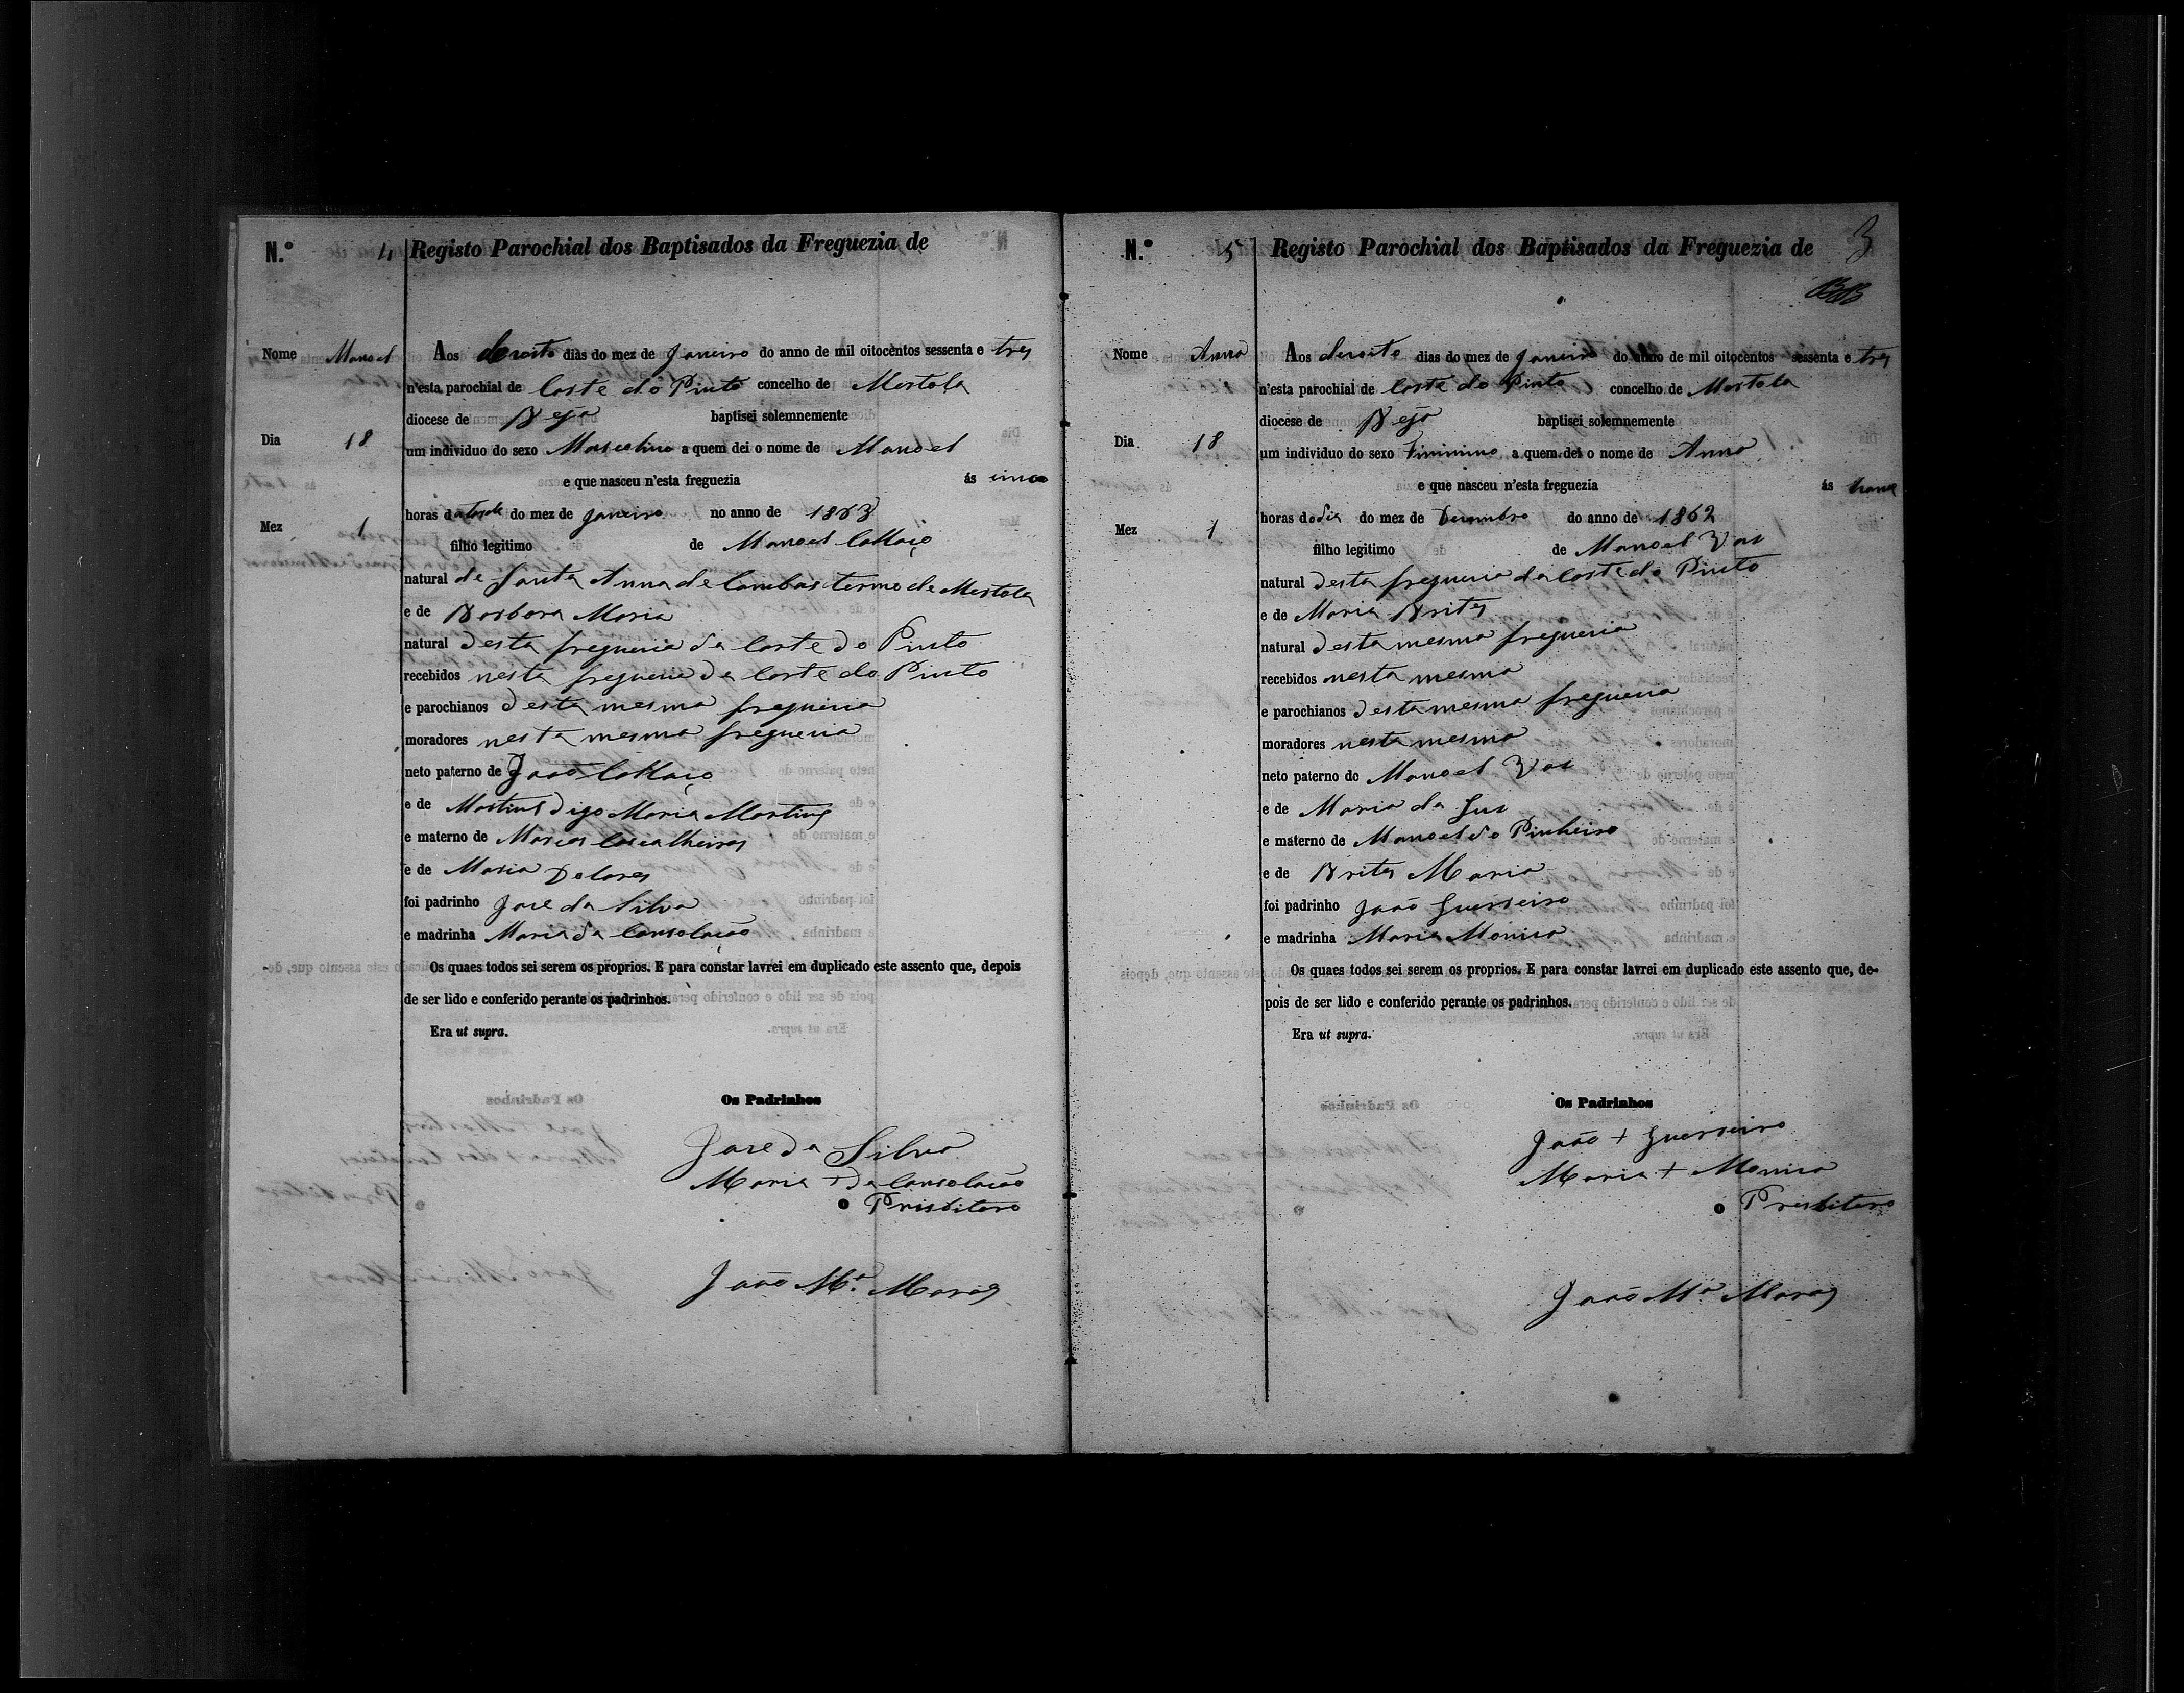 N.º 4 Registo Parochial dos Baptisados da Freguezia de
Nome Manoel Aos desoito dias do mez de Janeiro do anno de mil oitocentos sessenta e tres
n'esta parochial de Corte do Pinto concelho de Mertola
diocese de Beja baptisei solemnemente
Dia 18 um individuo do sexo Masculino a quem dei o nome de Manoel
e que nasceu n'esta freguezia ás cinco
Mez 1 horas da tarde do mez de Janeiro no anno de 1863
filho legitimo de Manoel Collaço
natural de Santa Anna de Cambas termo de Mertola
e de Barbora Maria
natural desta freguesia da Corte do Pinto
recebidos nesta freguesia da Corte do Pinto
e parochianos desta mesma freguesia
moradores nesta mesma freguesia
neto paterno de João Collaço
e de Martins digo Maria Martins
e materno de Marcos
e de Maria Dolores
foi padrinho Jose da Silva
e madrinha Maria da Consolação
Os quaes todos sei serem os proprios. E para constar lavrei em duplicado este assento que, depois
de ser lido e conferido perante os padrinhos.
Era ut supra.
Os Padrinhos
Jose da Silva
Maria + da Consolação
o Prisbitero
João M.ª
N.º 5 Registo Parochial dos Baptisados da Freguezia de 3
Nome Anna Aos desoite dias do mez de Janeiro do anno de mil oitocentos sessenta e tres
n'esta parochial de Corte do Pinto concelho de Mertola
diocese de Beja baptisei solemnemente
Dia 18 um individuo do sexo Fiminino a quem dei o nome de Anna
e que nasceu n'esta freguezia ás
Mez 1 horas do dia do mez de Desembro do anno de 1862
filho legitimo de Manoel Vas
natural desta freguesia da Corte do Pinto
e de Maria Brites
natural desta mesma freguesia
recebidos nesta mesma
e parochianos desta mesma freguesia
moradores nesta mesma
neto paterno de Manoel Vas
e de Maria da Lus
e materno de Manoel do Pinheiro
e de Brites Maria
foi padrinho João Guerreiro
e madrinha Maria Monica
Os quaes todos sei serem os proprios. E para constar lavrei em duplicado este assento que, de-
pois de ser lido e conferido perante os padrinhos.
Era ut supra.
Os Padrinhos
João + Guerreiro
Maria + Monica
o Presbitero
João M.ª